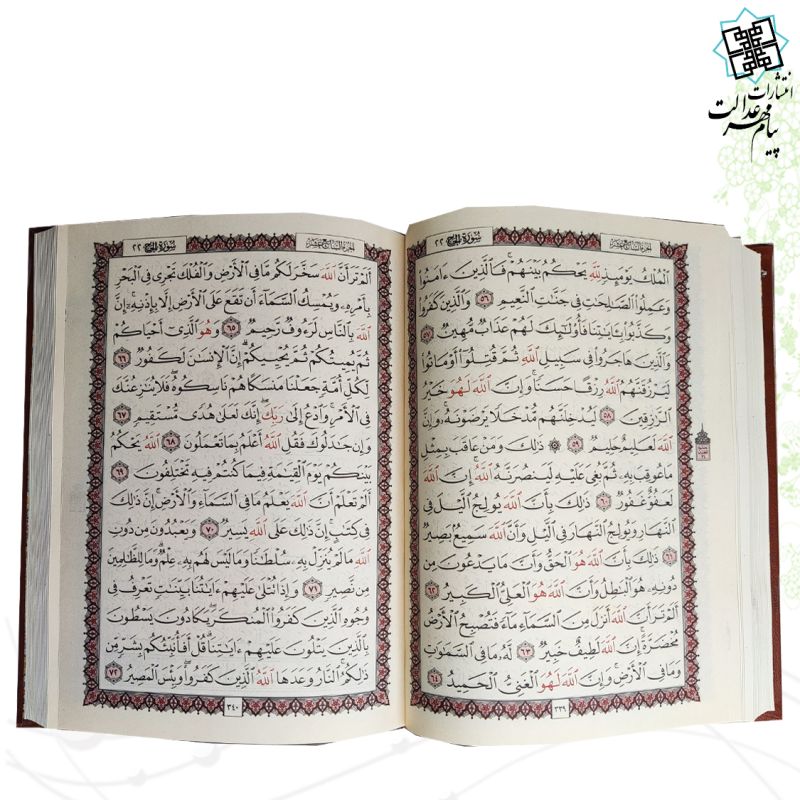 انتشارات
پیام مهر عدالت
الجزء السابع عشر سورة الحج ٢٢
ٱلْمُلْكُ يَوْمَئِذٍ لِّلَّهِ يَحْكُمُ بَيْنَهُمْ ۚ فَٱلَّذِينَ ءَامَنُوا۟
وَعَمِلُوا۟ ٱلصَّٰلِحَٰتِ فِى جَنَّٰتِ ٱلنَّعِيمِ ٥٦ وَٱلَّذِينَ كَفَرُوا۟
وَكَذَّبُوا۟ بِـَٔايَٰتِنَا فَأُو۟لَٰٓئِكَ لَهُمْ عَذَابٌ مُّهِينٌ ٥٧
وَٱلَّذِينَ هَاجَرُوا۟ فِى سَبِيلِ ٱللَّهِ ثُمَّ قُتِلُوٓا۟ أَوْ مَاتُوا۟
لَيَرْزُقَنَّهُمُ ٱللَّهُ رِزْقًا حَسَنًا ۚ وَإِنَّ ٱللَّهَ لَهُوَ خَيْرُ
ٱلرَّٰزِقِينَ ٥٨ لَيُدْخِلَنَّهُم مُّدْخَلًا يَرْضَوْنَهُۥ ۗ وَإِنَّ
ٱللَّهَ لَعَلِيمٌ حَلِيمٌ ٥٩ ۞ ذَٰلِكَ وَمَنْ عَاقَبَ بِمِثْلِ
مَا عُوقِبَ بِهِۦ ثُمَّ بُغِىَ عَلَيْهِ لَيَنصُرَنَّهُ ٱللَّهُ ۗ إِنَّ ٱللَّهَ
لَعَفُوٌّ غَفُورٌ ٦٠ ذَٰلِكَ بِأَنَّ ٱللَّهَ يُولِجُ ٱلَّيْلَ فِى
ٱلنَّهَارِ وَيُولِجُ ٱلنَّهَارَ فِى ٱلَّيْلِ وَأَنَّ ٱللَّهَ سَمِيعٌۢ بَصِيرٌ
٦١ ذَٰلِكَ بِأَنَّ ٱللَّهَ هُوَ ٱلْحَقُّ وَأَنَّ مَا يَدْعُونَ مِن
دُونِهِۦ هُوَ ٱلْبَٰطِلُ وَأَنَّ ٱللَّهَ هُوَ ٱلْعَلِىُّ ٱلْكَبِيرُ ٦٢
أَلَمْ تَرَ أَنَّ ٱللَّهَ أَنزَلَ مِنَ ٱلسَّمَآءِ مَآءً فَتُصْبِحُ ٱلْأَرْضُ
مُخْضَرَّةً ۗ إِنَّ ٱللَّهَ لَطِيفٌ خَبِيرٌ ٦٣ لَّهُۥ مَا فِى ٱلسَّمَٰوَٰتِ
وَمَا فِى ٱلْأَرْضِ ۗ وَإِنَّ ٱللَّهَ لَهُوَ ٱلْغَنِىُّ ٱلْحَمِيدُ ٦٤
٣٣٩
الجزء السابع عشر سورة الحج ٢٢
أَلَمْ تَرَ أَنَّ ٱللَّهَ سَخَّرَ لَكُم مَّا فِى ٱلْأَرْضِ وَٱلْفُلْكَ تَجْرِى فِى ٱلْبَحْرِ
بِأَمْرِهِۦ وَيُمْسِكُ ٱلسَّمَآءَ أَن تَقَعَ عَلَى ٱلْأَرْضِ إِلَّا بِإِذْنِهِۦٓ ۗ إِنَّ
ٱللَّهَ بِٱلنَّاسِ لَرَءُوفٌ رَّحِيمٌ ٦٥ وَهُوَ ٱلَّذِىٓ أَحْيَاكُمْ
ثُمَّ يُمِيتُكُمْ ثُمَّ يُحْيِيكُمْ ۗ إِنَّ ٱلْإِنسَٰنَ لَكَفُورٌ ٦٦
لِّكُلِّ أُمَّةٍ جَعَلْنَا مَنسَكًا هُمْ نَاسِكُوهُ ۖ فَلَا يُنَٰزِعُنَّكَ
فِى ٱلْأَمْرِ ۚ وَٱدْعُ إِلَىٰ رَبِّكَ ۖ إِنَّكَ لَعَلَىٰ هُدًى مُّسْتَقِيمٍ ٦٧
وَإِن جَٰدَلُوكَ فَقُلِ ٱللَّهُ أَعْلَمُ بِمَا تَعْمَلُونَ ٦٨ ٱللَّهُ يَحْكُمُ
بَيْنَكُمْ يَوْمَ ٱلْقِيَٰمَةِ فِيمَا كُنتُمْ فِيهِ تَخْتَلِفُونَ ٦٩
أَلَمْ تَعْلَمْ أَنَّ ٱللَّهَ يَعْلَمُ مَا فِى ٱلسَّمَآءِ وَٱلْأَرْضِ ۗ إِنَّ ذَٰلِكَ
فِى كِتَٰبٍ ۚ إِنَّ ذَٰلِكَ عَلَى ٱللَّهِ يَسِيرٌ ٧٠ وَيَعْبُدُونَ مِن دُونِ
ٱللَّهِ مَا لَمْ يُنَزِّلْ بِهِۦ سُلْطَٰنًا وَمَا لَيْسَ لَهُم بِهِۦ عِلْمٌ ۗ وَمَا لِلظَّٰلِمِينَ
مِن نَّصِيرٍ ٧١ وَإِذَا تُتْلَىٰ عَلَيْهِمْ ءَايَٰتُنَا بَيِّنَٰتٍ تَعْرِفُ فِى
وُجُوهِ ٱلَّذِينَ كَفَرُوا۟ ٱلْمُنكَرَ ۖ يَكَادُونَ يَسْطُونَ
بِٱلَّذِينَ يَتْلُونَ عَلَيْهِمْ ءَايَٰتِنَا ۗ قُلْ أَفَأُنَبِّئُكُم بِشَرٍّ مِّن
ذَٰلِكُمُ ۗ ٱلنَّارُ وَعَدَهَا ٱللَّهُ ٱلَّذِينَ كَفَرُوا۟ ۖ وَبِئْسَ ٱلْمَصِيرُ ٧٢
٣٤٠